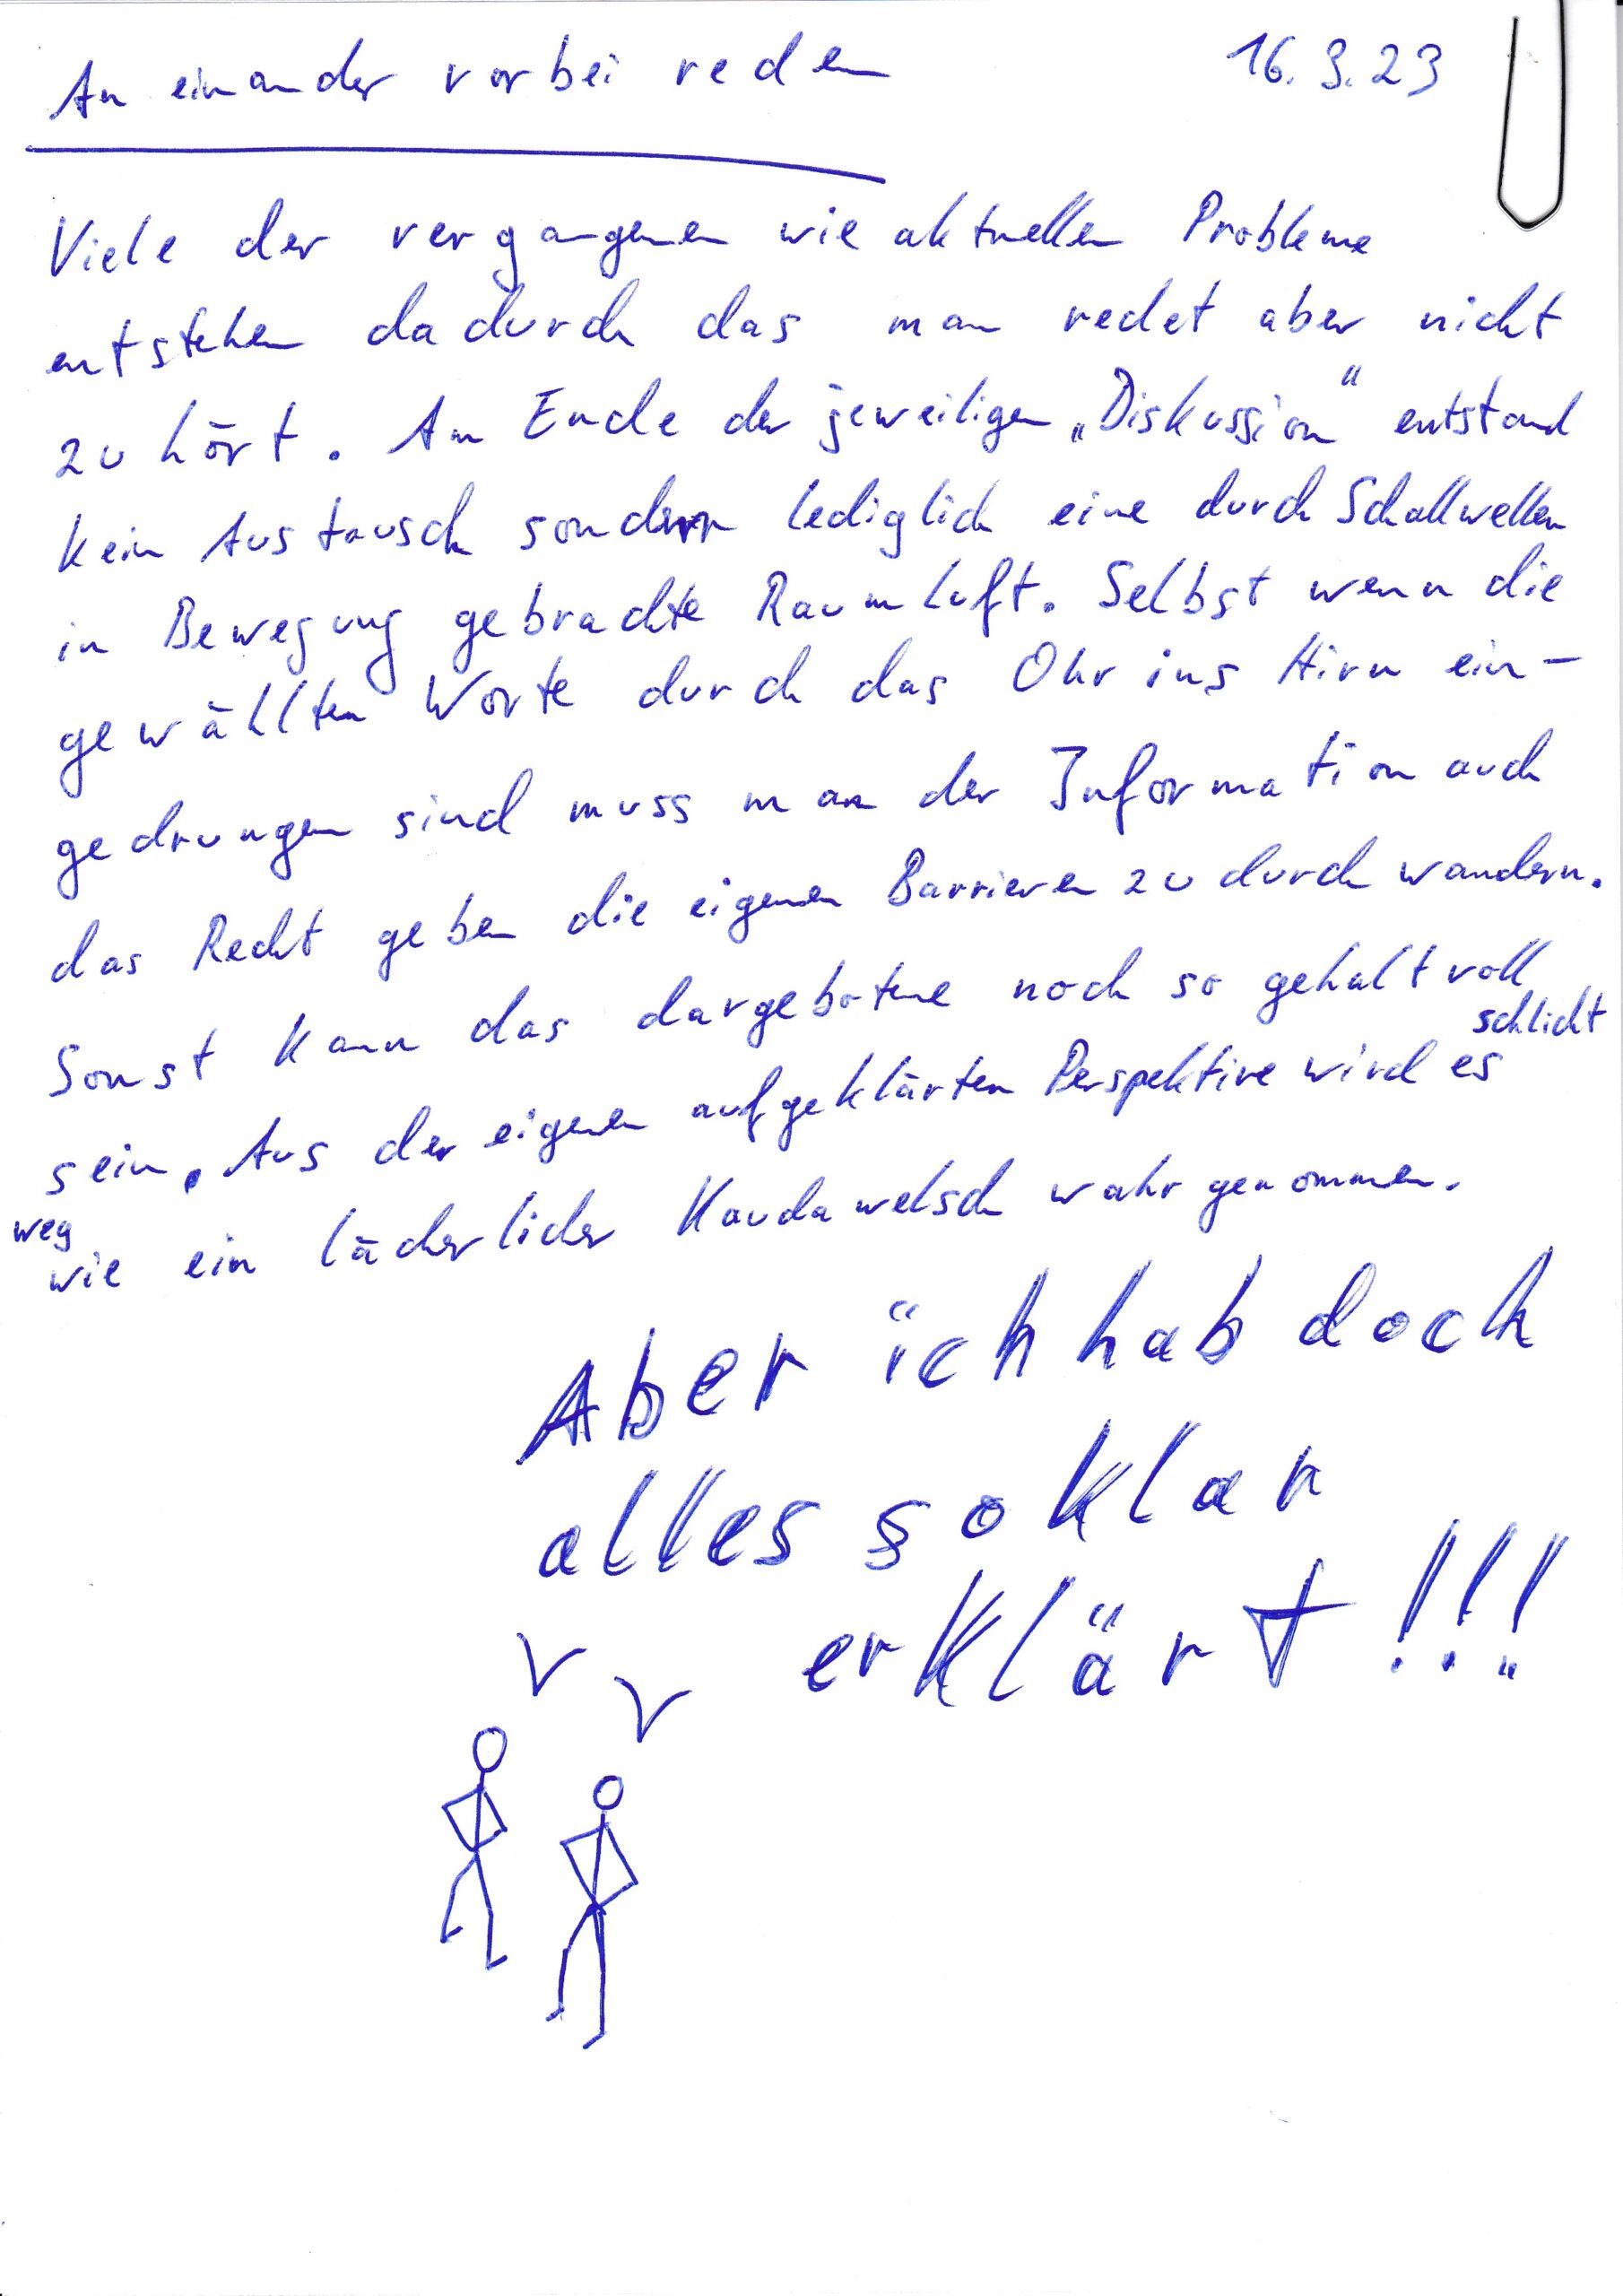 An einander vorbei reden 16.3.23
Viele der vergangenen wie aktuellen Probleme
entstehen dadurch das man redet aber nicht
zu hört. Am Ende der jeweiligen „Diskussion“ entstand
kein Austausch sondern lediglich eine durch Schallwellen
in Bewegung gebrachte Raumluft. Selbst wenn die
gewählten Worte durch das Ohr ins Hirn ein-
gedrungen sind muss man der Information auch
das Recht geben die eigenen Barrieren zu durch wandern.
Sonst kann das dargebotene noch so gehaltvoll
sein. Aus der eigenen aufgeklärten Perspektive wird es schlicht
weg
wie ein lächerlicher Kaudawelsch wahrgenommen.
Aber ich hab doch
alles so klar
erklärt!!!